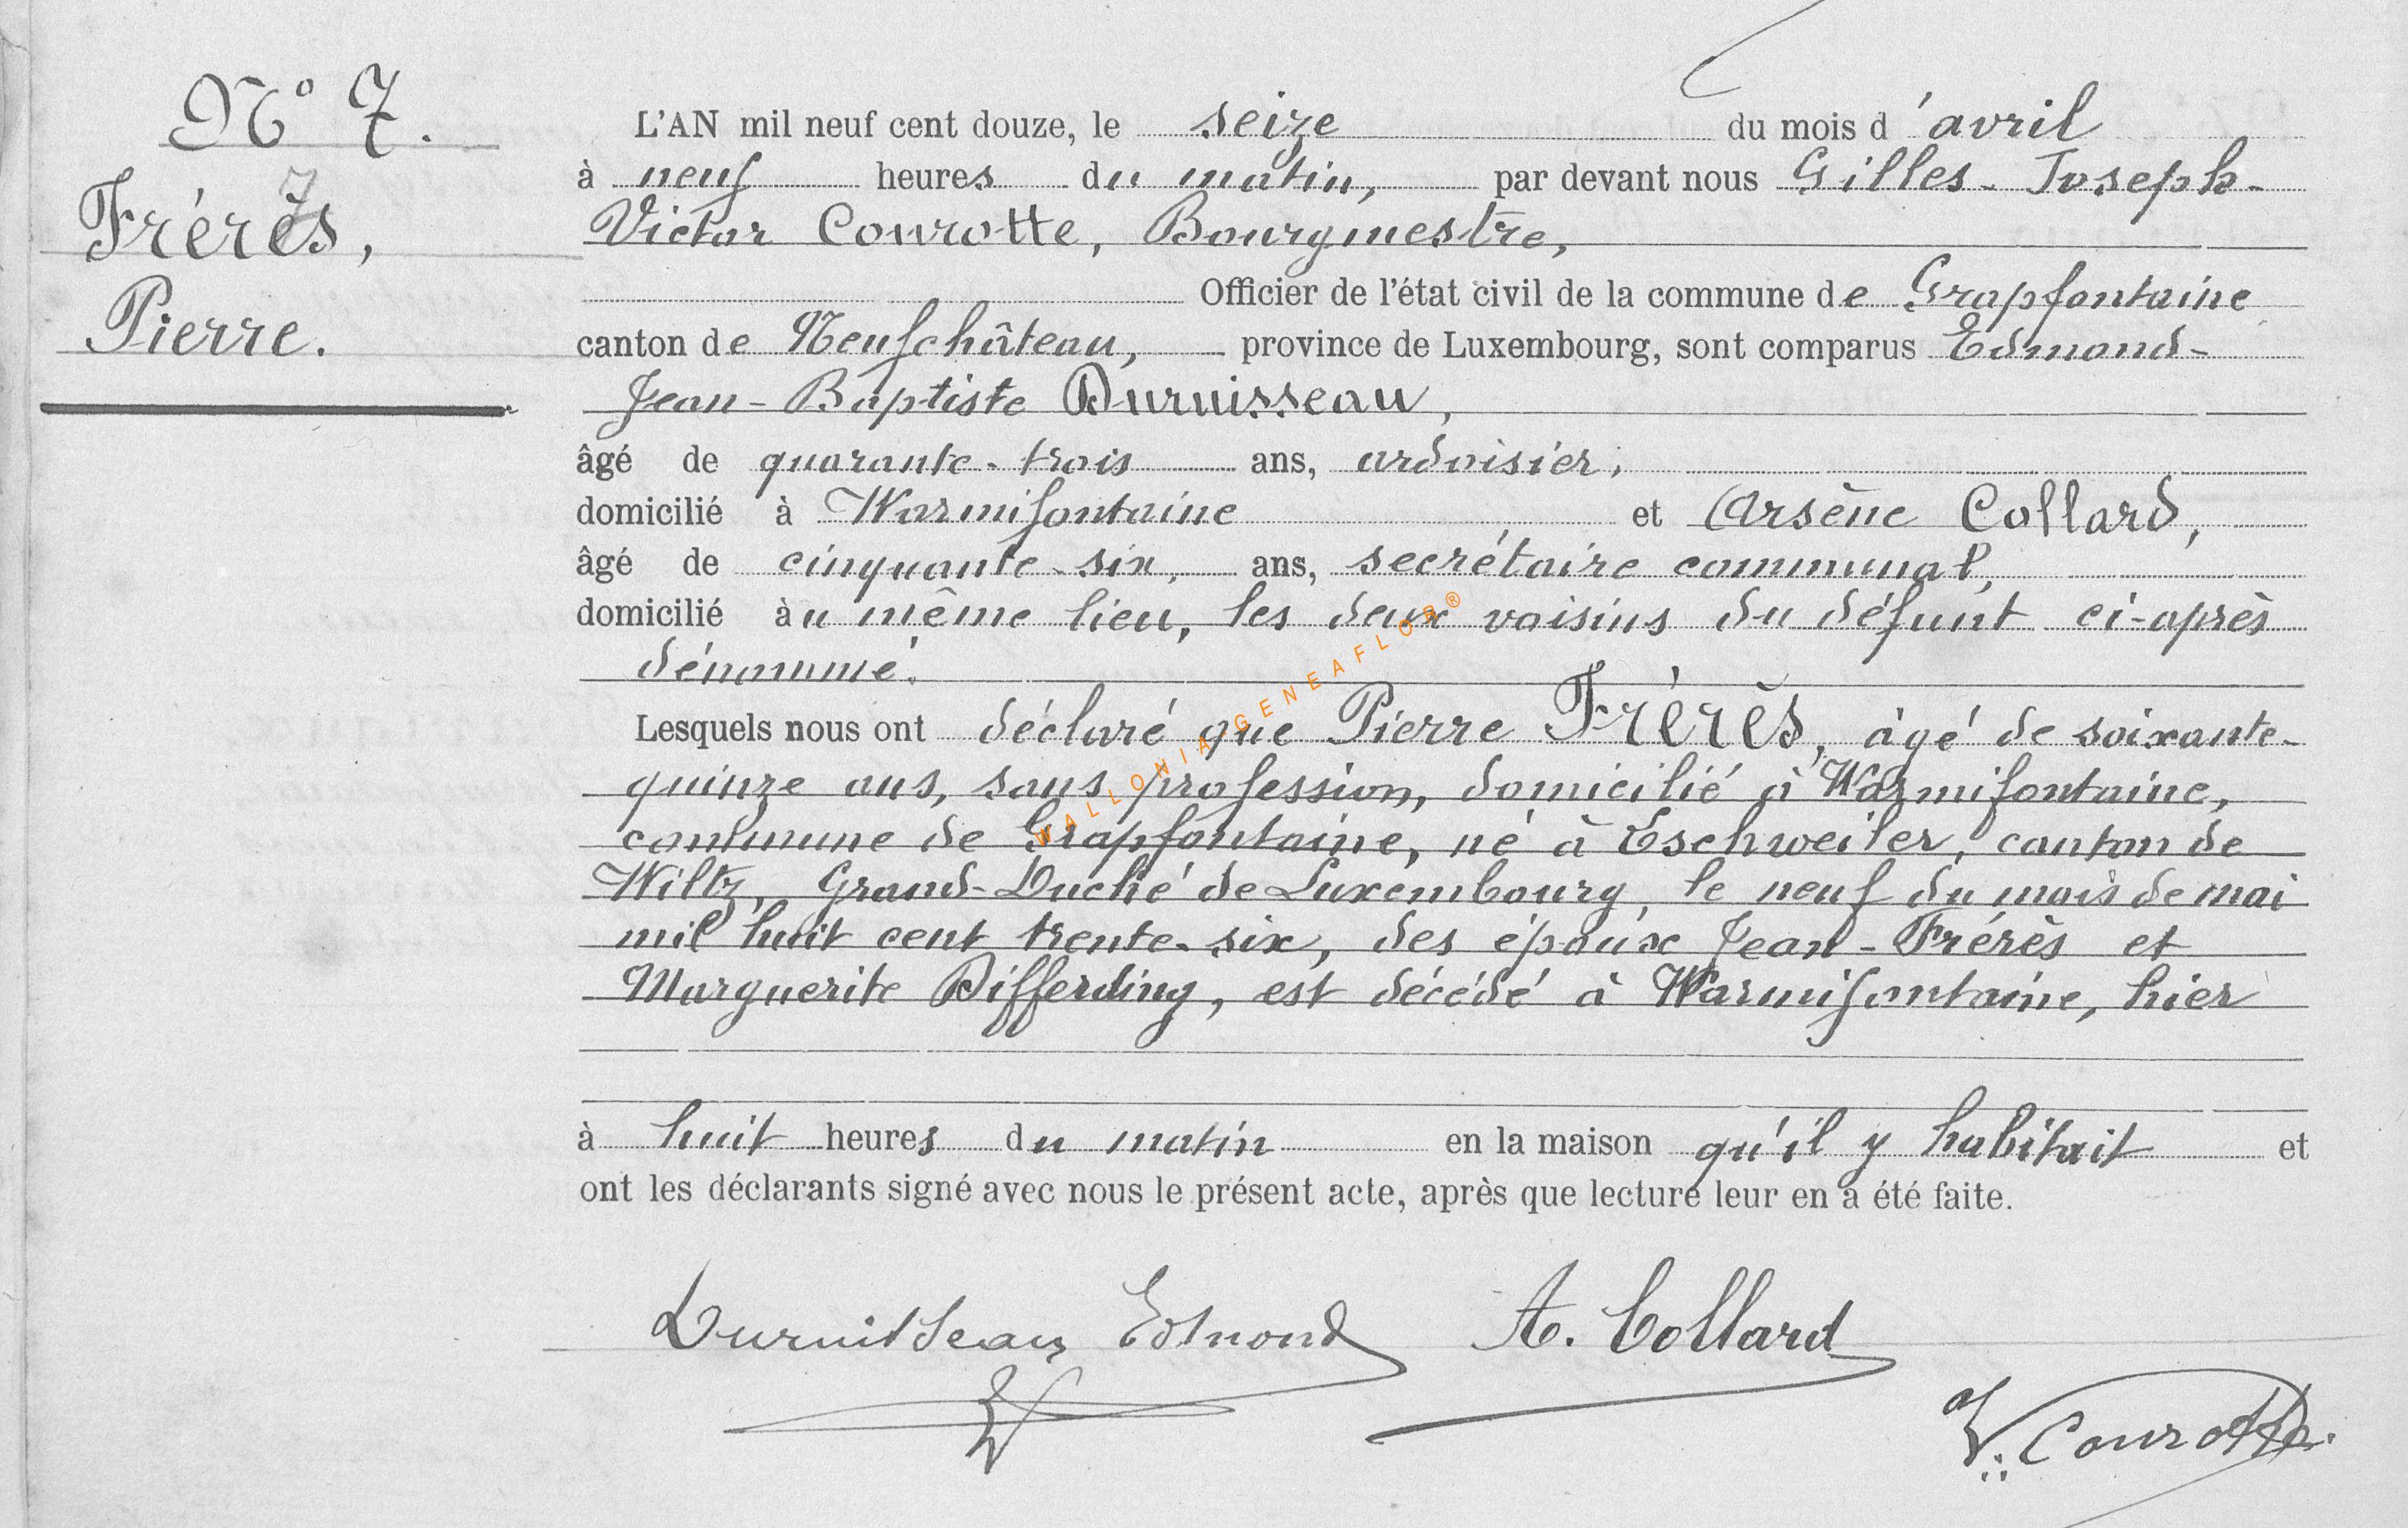 N° 7.
Frérès,
Pierre.
L'AN mil neuf cent douze, le seize du mois d'avril
à neuf heures du matin, par devant nous Gilles-Joseph-
Victor Courotte, Bourgmestre,
Officier de l'état civil de la commune de Grapfontaine
canton de Neufchâteau, province de Luxembourg, sont comparus Edmond-
Jean-Baptiste Duruisseau,
âgé de quarante-trois ans, ardoisier,
domicilié à Warmifontaine et Arsène Collard,
âgé de cinquante-six, ans, secrétaire communal,
domicilié àu même lieu, les deux voisins du défunt ci-après
dénommé.
Lesquels nous ont déclaré que Pierre Frérès, âgé de soixante-
quinze ans, sans profession, domicilié à Warmifontaine,
commune de Grapfontaine, né à Eschweiler, canton de
Wiltz, Grand-Duché de Luxembourg, le neuf du mois de mai
mil huit cent trente-six, des époux Jean-Frérès et
Marguerite Differding, est décédé à Warmifontaine, hier
à huit heures du matin en la maison qu'il y habitait et
ont les déclarants signé avec nous le présent acte, après que lecture leur en a été faite.
Duruisseau Edmond A. Collard
V. Courotte.
WALLONIA-GENEAFLOR®